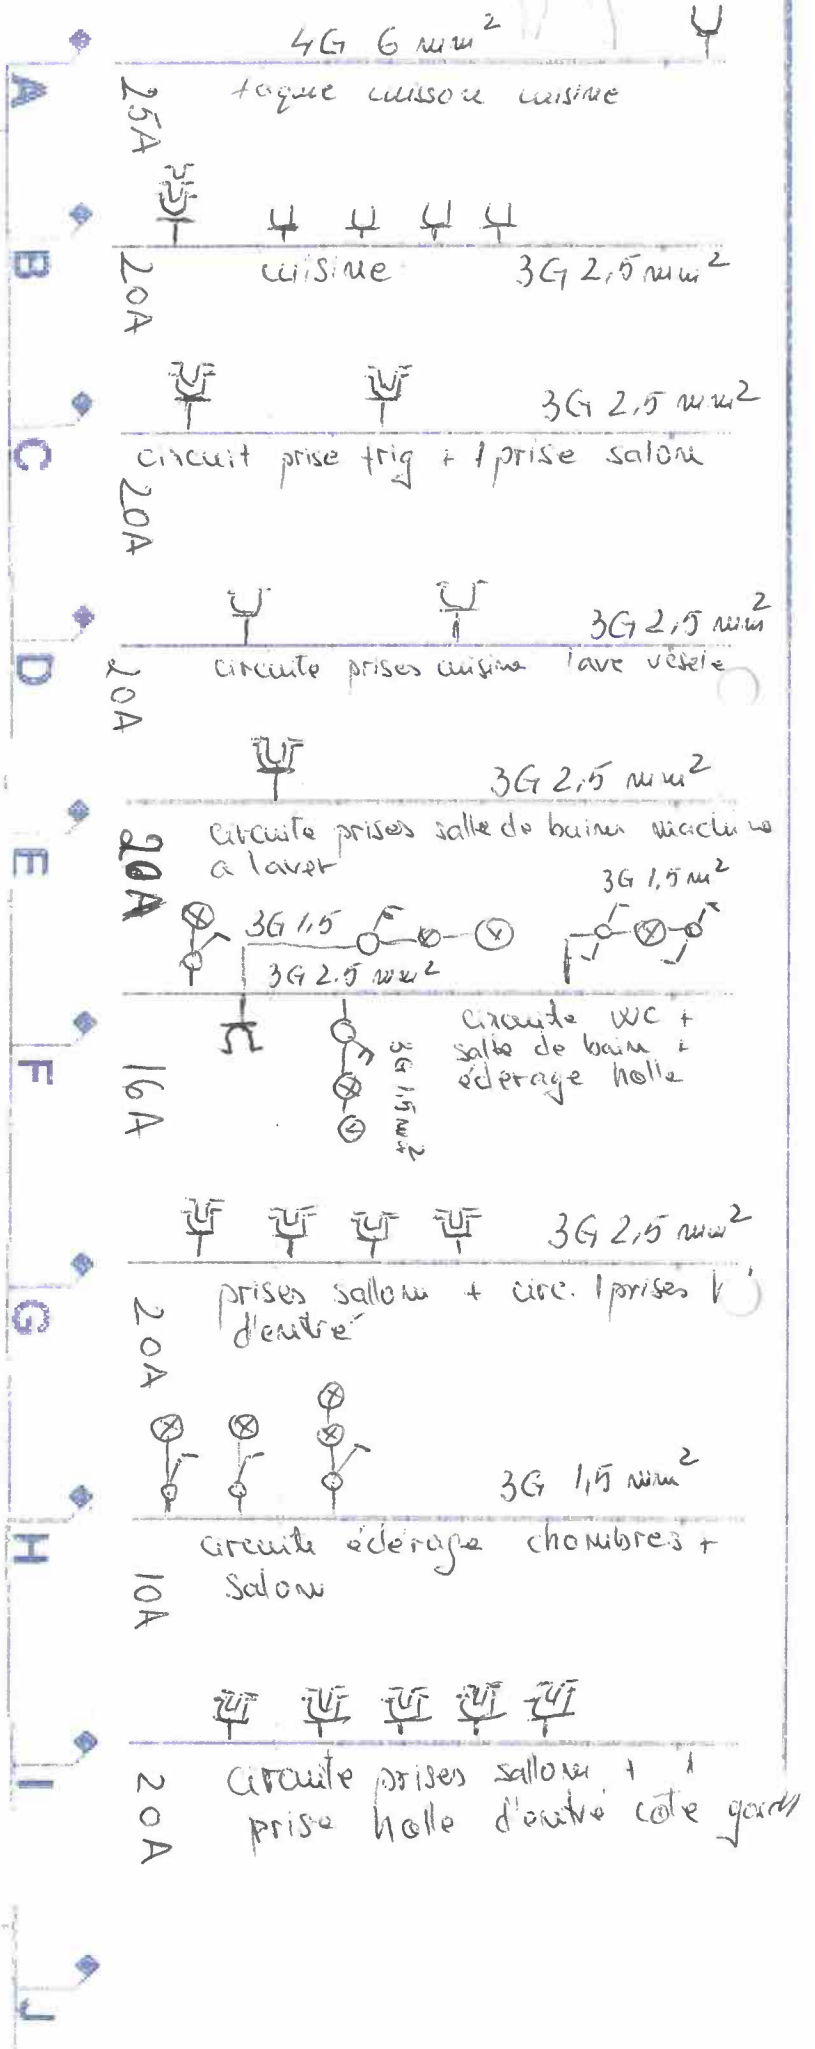 4G 6 mm²
A
25A
taque cuisson cuisine
B
20A
cuisine
3G 2,5 mm²
3G 2,5 mm²
C
circuit prise frig + 1 prise salon
20A
3G 2,5 mm²
D
circuite prises cuisine lave vèsele
20A
3G 2,5 mm²
E
20A
circuite prises salle de bain machine
a laver
3G 1,5 m²
3G 1,5
3G 2.5 mm²
F
16A
3G 1,5 mm²
circuite WC +
salle de bain +
éclerage holle
3G 2,5 mm²
G
20A
prises sallon + circ. 1 prises
d'entré
3G 1,5 mm²
H
10A
circuite éclerage chombres +
Salon
I
20A
circuite prises sallon + 1
prise holle d'entré cote
J